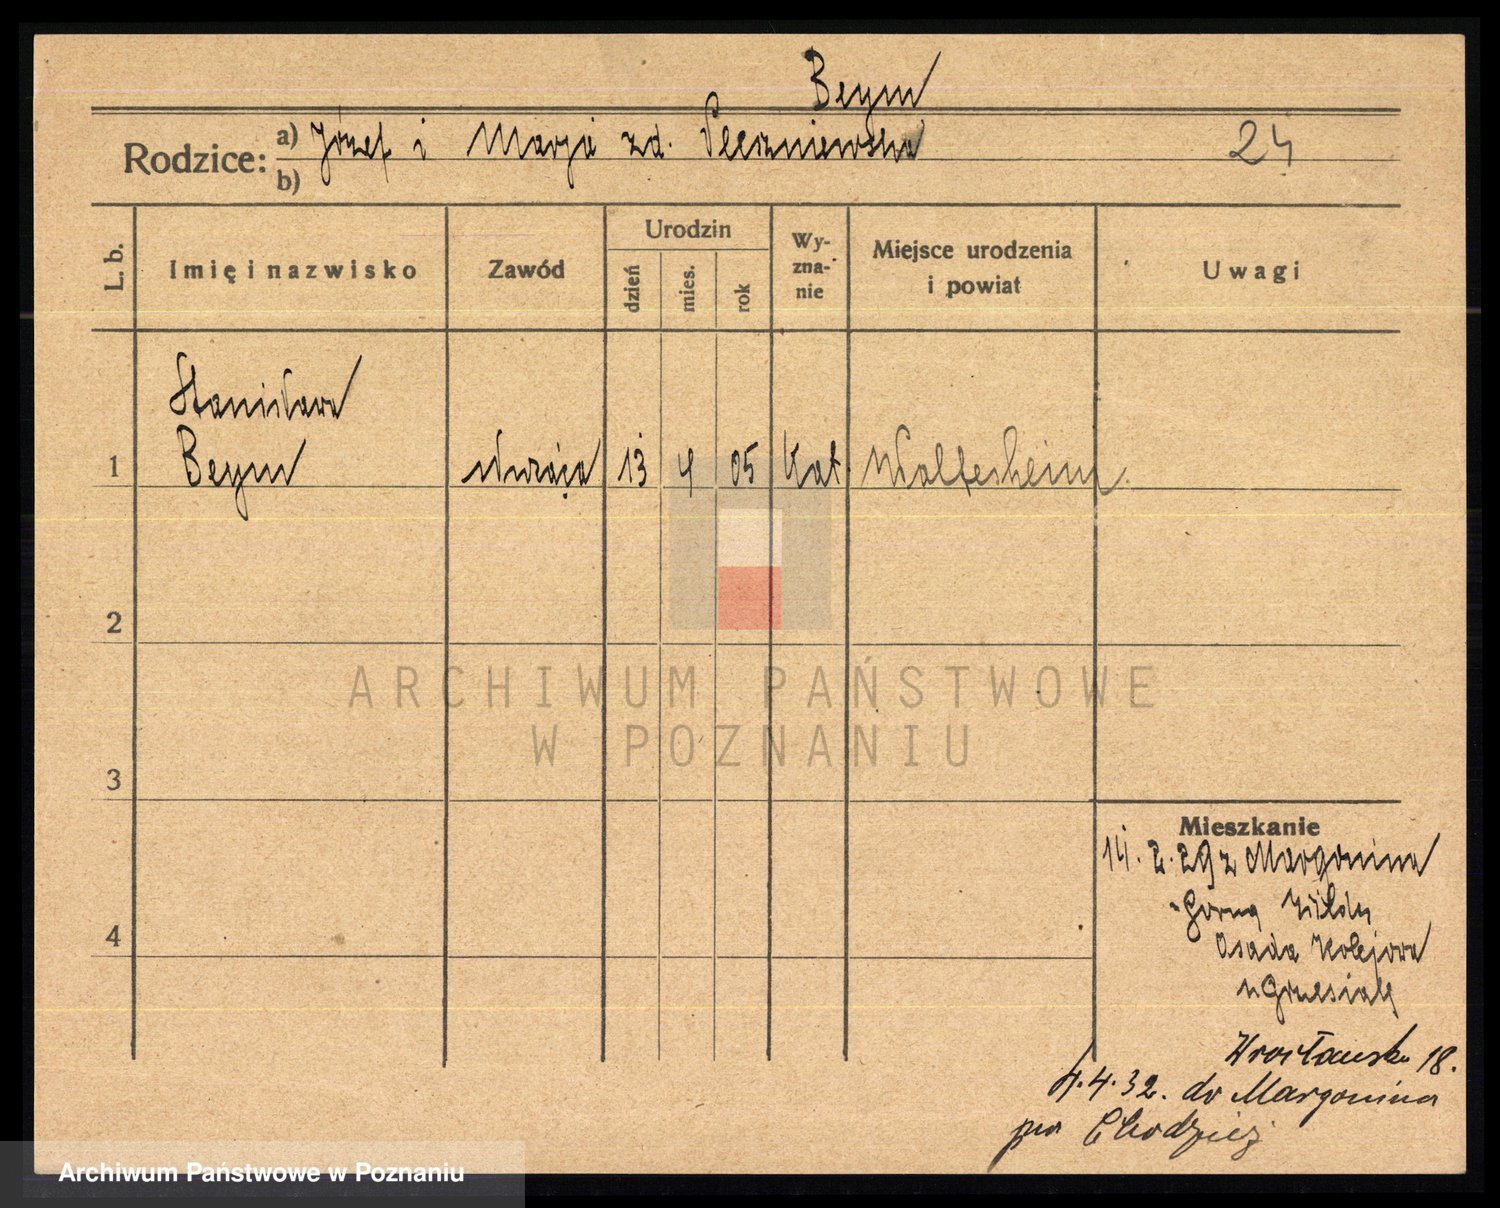 Beym
Rodzice: a) Józef i Marja zd.
b)
24
L. b.
Imię i nazwisko
Zawód
Urodzin
dzień
mies.
rok
Wy-
zna-
nie
Miejsce urodzenia
i powiat
Uwagi
Stanisława
1 Beym 13 4 05 Kat.
2
3
4
ARCHIWUM PAŃSTWOWE
W POZNANIU
Mieszkanie
14. 2. 29 z Margonina
Górna Wilda
Osada Kolejowa
Wrocławska 18.
4.4.32. do Margonina
pow Chodzież
Archiwum Państwowe w Poznaniu